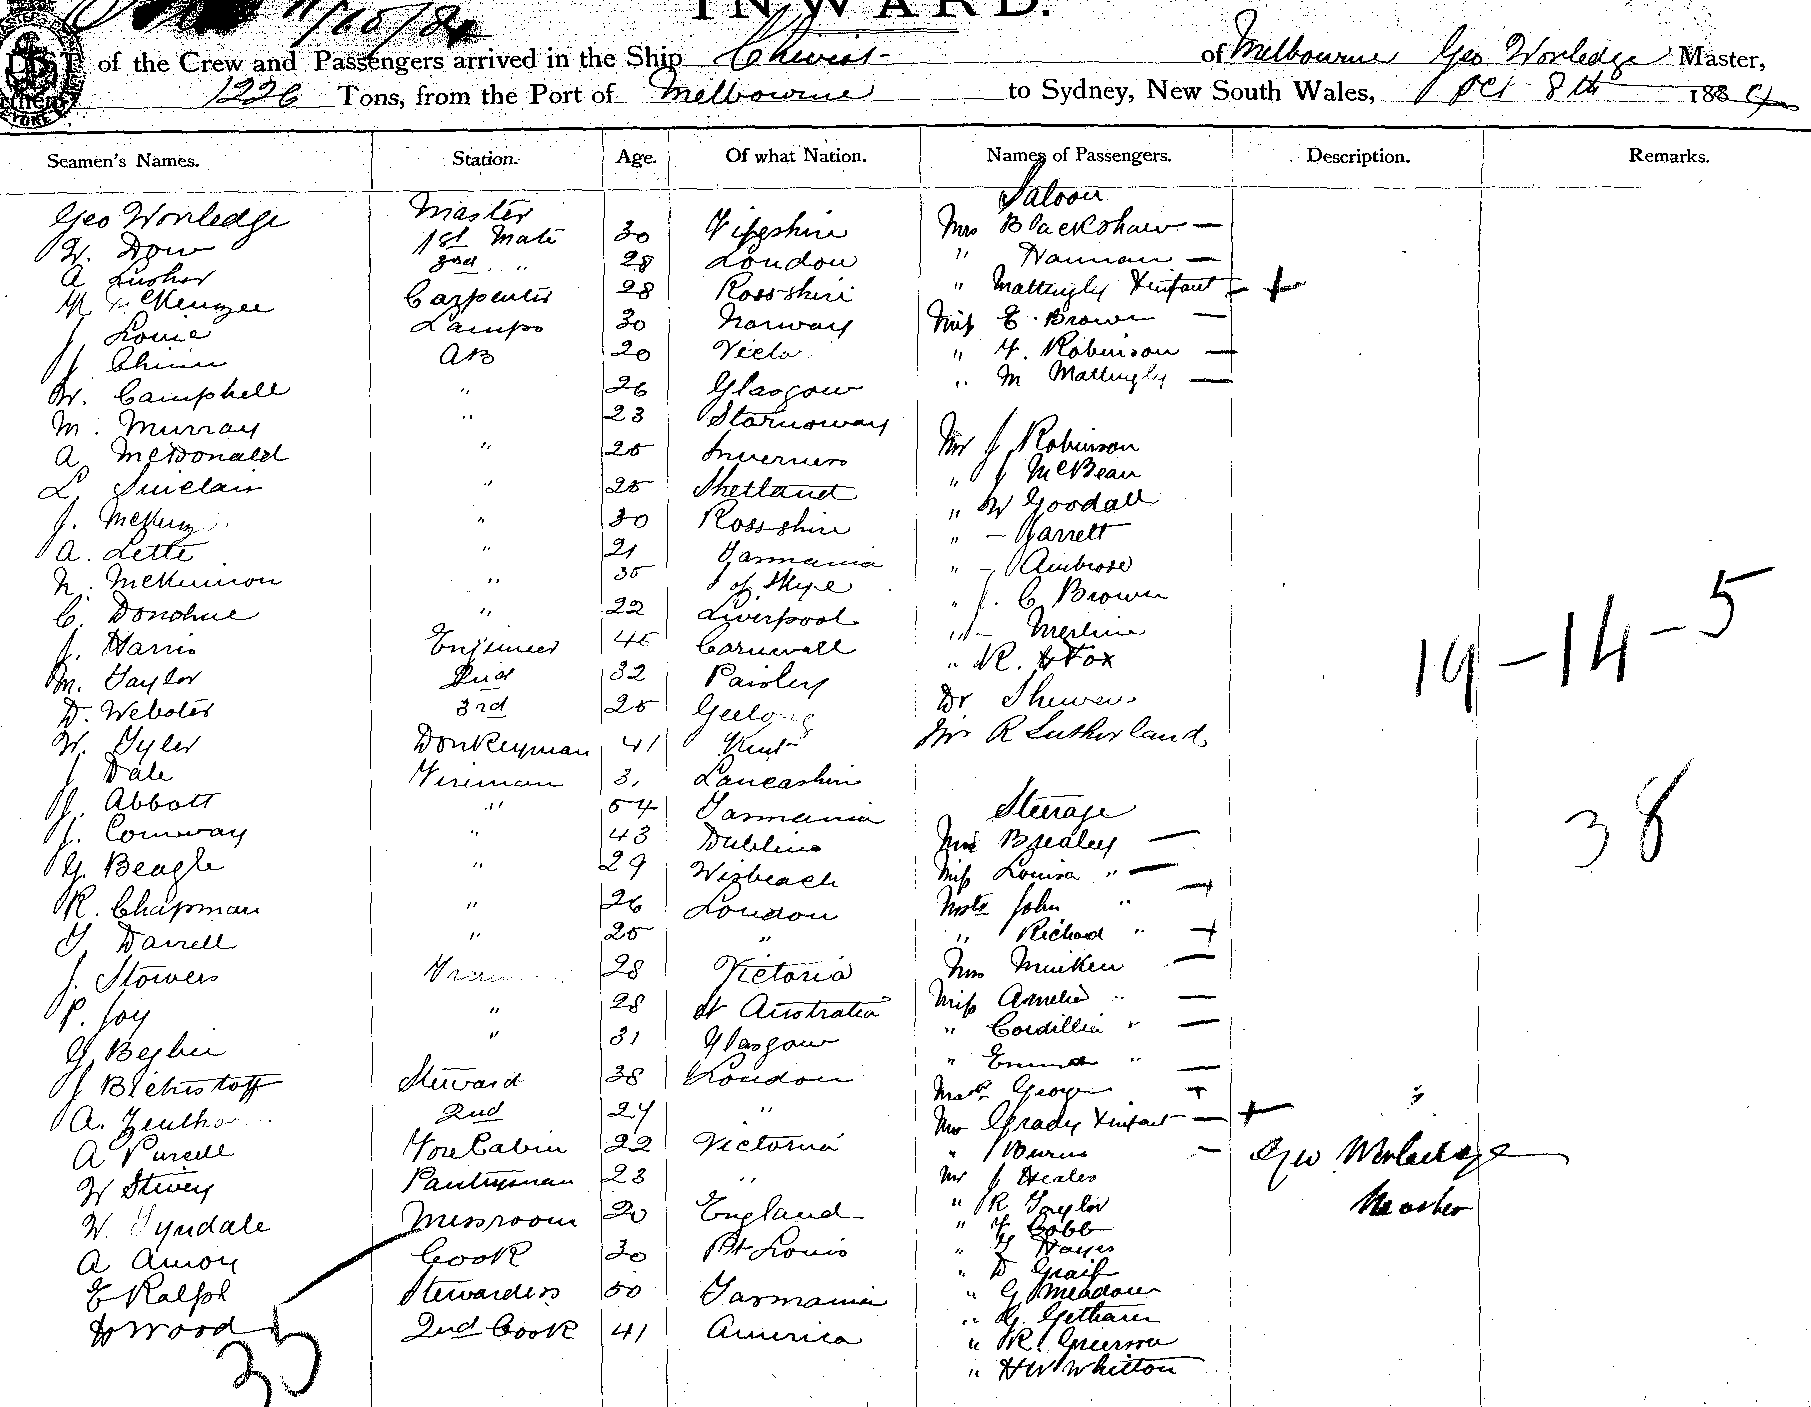 11/10/84
INWARD.
LIST of the Crew and Passengers arrived in the Ship Cheviot of Melbourne Geo Worledge Master,
1226 Tons, from the Port of Melbourne to Sydney, New South Wales, Oct 8th 1884
Seamen's Names. Station. Age. Of what Nation. Names of Passengers. Description. Remarks.
Saloon
Geo Worledge Master Mrs Blackshaw —
W. Dow 1st Mate 30 Fifeshire " Hannan —
A Lusher 2nd " 28 London " Mattingly & infant — +
McKenzie Carpenter 28 Ross-shire Miss E. Brown —
J Louie Lamps 30 Norway " F. Robinson —
J Chinn AB 20 Victa " M Mattingly —
W. Campbell " 26 Glasgow
M. Murray " 23 Stornoway Mr J Robinson
A McDonald " 25 Inverness " J McBean
L Sinclair " 25 Shetland " W Goodall
J. " 30 Ross-shire " — Garrett
A. Lette " 21 Tasmania " — Ambrose
N. McKinnon " 35 I of Skye " J. C. Brown
C. Donohue " 22 Liverpool " —
J. Harris Engineer 45 Cornwall " R. Fox
M. Taylor 2nd 32 Paisley Dr
D. Webster 3rd 25 Geelong Mr R Sutherland
W. Tyler Donkeyman 41 Kent
J Dale Fireman 3. Lancashire
J. Abbott " 54 Tasmania Steerage
J. Conway " 43 Dublin Mrs Brealey —
G. Beagle " 29 Wisbeach Miss Louisa " —
R. Chapman " 26 London Mastr John " +
T Darrell " 25 " " Richard " +
J. Stowers 28 Victoria Mrs —
P. Joy " 28 St Australia Miss Amelia " —
G. " 31 Glasgow " Cordillia " —
J Steward 38 London " Emma " —
A. 2nd 24 " Mastr George +
A Purcell Fore Cabin 22 Victoria Mrs Grady & infant — +
W Stivey Pantryman 23 " " Burns —
W. Tyndale Messroom 20 England Mr J Heales
A Amon Cook 30 Pt Louis " R Taylor
E Ralph Stewardess 50 Tasmania " F Cobb
H Wood 2nd Cook 41 America " T Hayes
" D
" G Meadows
" G.
" R.
" H W Whitton
19 — 14 — 5
38
Geo Worledge
Master
35